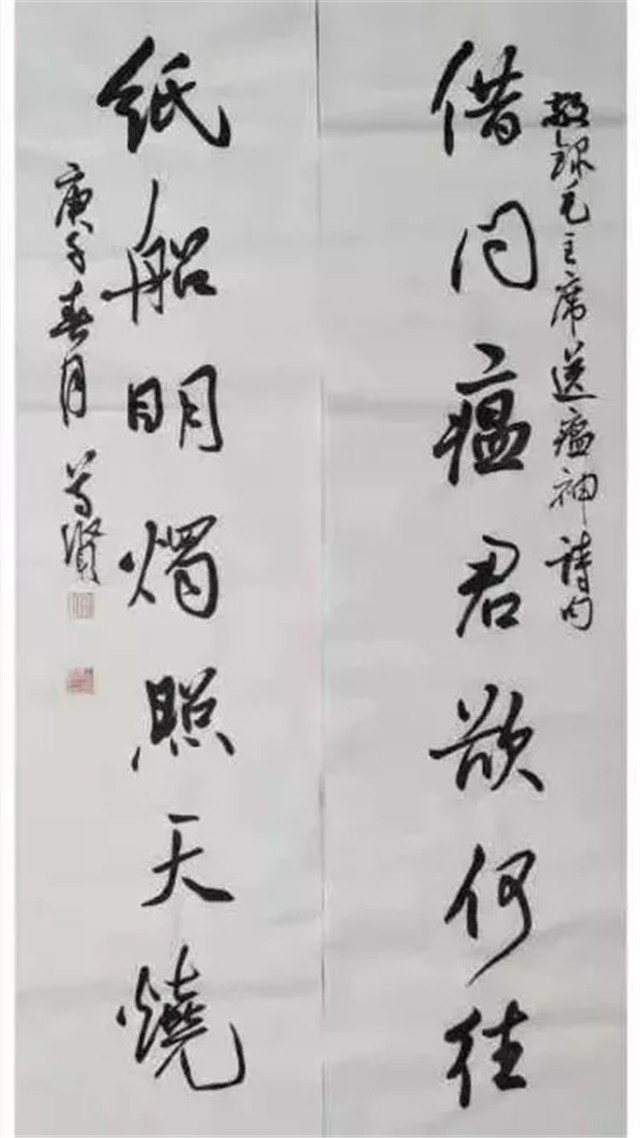 敬錄毛主席送瘟神诗句
借问瘟君欲何往
纸船明燭照天燒
庚子春月